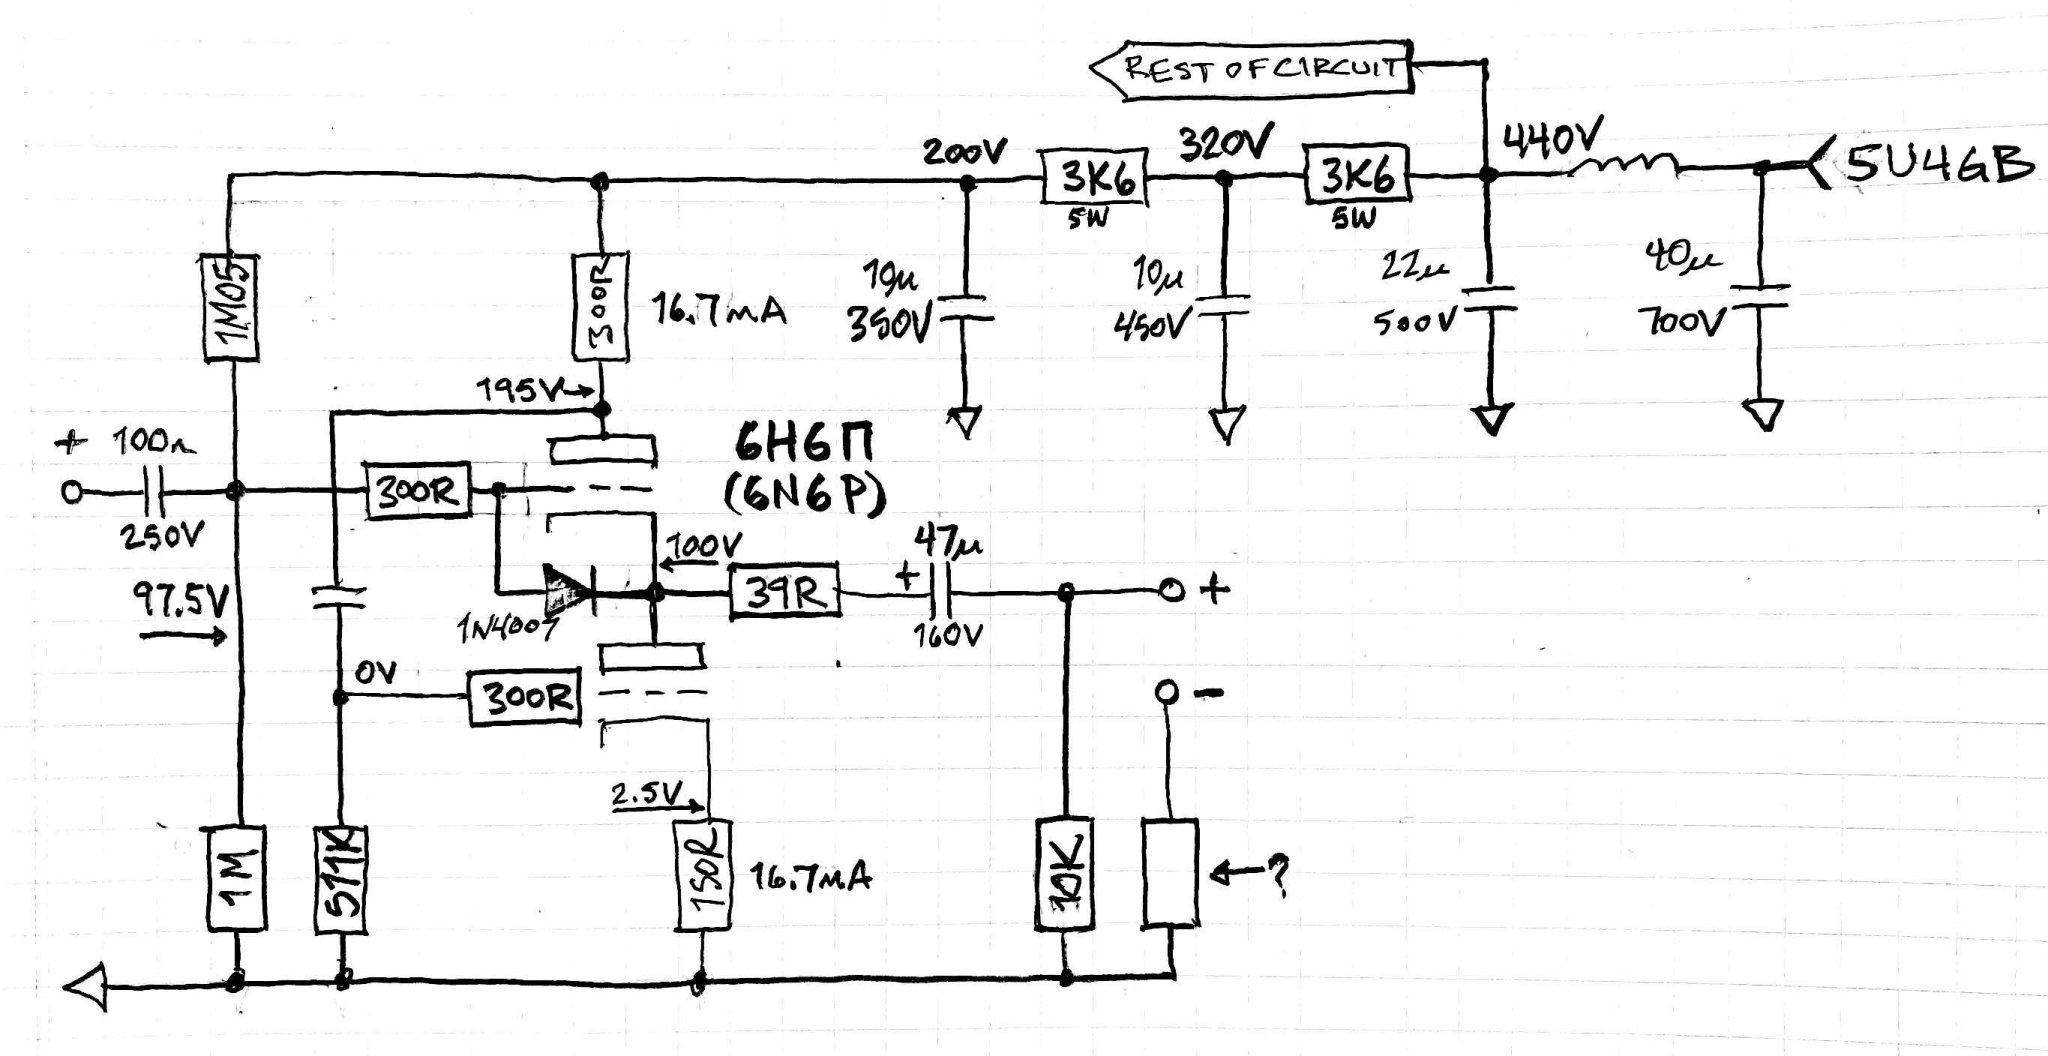 REST OF CIRCUIT
440V
5U4GB
320V
200V
3K6
5W
3K6
5W
1M05
300R
16.7mA
10µ
350V
10µ
450V
22µ
500V
40µ
700V
195V
+
100n
250V
300R
6Н6П
(6N6P)
100V
47µ
+
160V
39R
+
97.5V
1N4007
0V
300R
-
2.5V
1M
511K
150R
16.7mA
10K
?